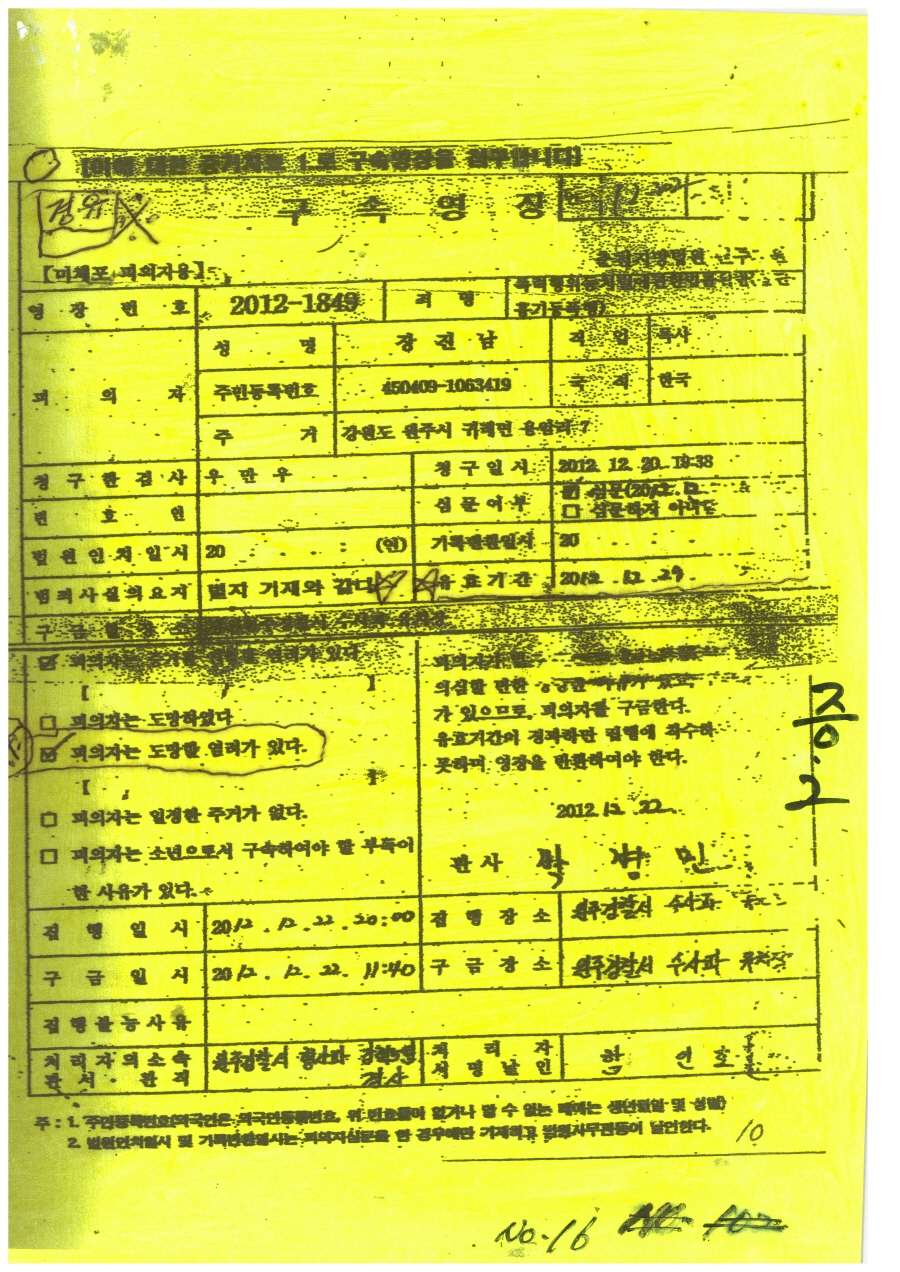 구 속 영 장
【미체포 피의자용】
영 장 번 호 2012-1849 죄 명
성 명 장 진 남 직 업 목사
피 의 자 주민등록번호 450409-1063419 국 적 한국
주 거 강원도 원주시 귀래면 용암리 7
청 구 한 검 사 우 만 우 청 구 일 시 2012. 12. 20. 19:38
변 호 인 심 문 여 부 심문(2012. 12.
□ 심문하지 아니함
법 원 인 치 일 시 20 . . . : (인) 기록반환일시 20 . . .
범죄사실의요지 별지 기재와 같다 유 효 기 간 2012. 12. 29.
구 금 할 장 소
피의자는 증거를 인멸할 염려가 있다
【 】
□ 피의자는 도망하였다
☑ 피의자는 도망할 염려가 있다.
【 】
□ 피의자는 일정한 주거가 없다.
□ 피의자는 소년으로서 구속하여야 할 부득이
한 사유가 있다.
피의자가
의심할 만한 상당한 이유가 있고,
가 있으므로, 피의자를 구금한다.
유효기간이 경과하면 집행에 착수하
못하며 영장을 반환하여야 한다.
2012. 12. 22.
판사
증. 2
집 행 일 시 2012. 12. 22. 20:00 집 행 장 소 원주경찰서 수사과
구 금 일 시 2012. 12. 22. 11:40 구 금 장 소 원주경찰서 수사과 유치장
집 행 불 능 사 유
처 리 자 의 소 속 원주경찰서 형사과 처 리 자
관 서 · 관 직 경사 서 명 날 인
주 : 1. 주민등록번호(외국인은 외국인등록번호, 위 번호들이 없거나 알 수 없는 때에는 생년월일 및 성별)
2. 법원인치일시 및 기록반환일시는 피의자심문을 한 경우에만 기재하고 법원사무관등이 날인한다.
10
No. 16